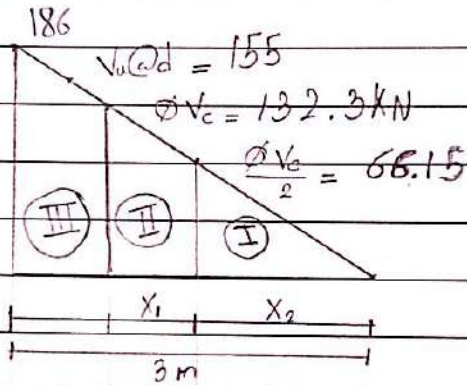 186
Vu@d = 155
ØVc = 132.3KN
ØVc/2 = 66.15
III II I
X₁ X₂
3 m